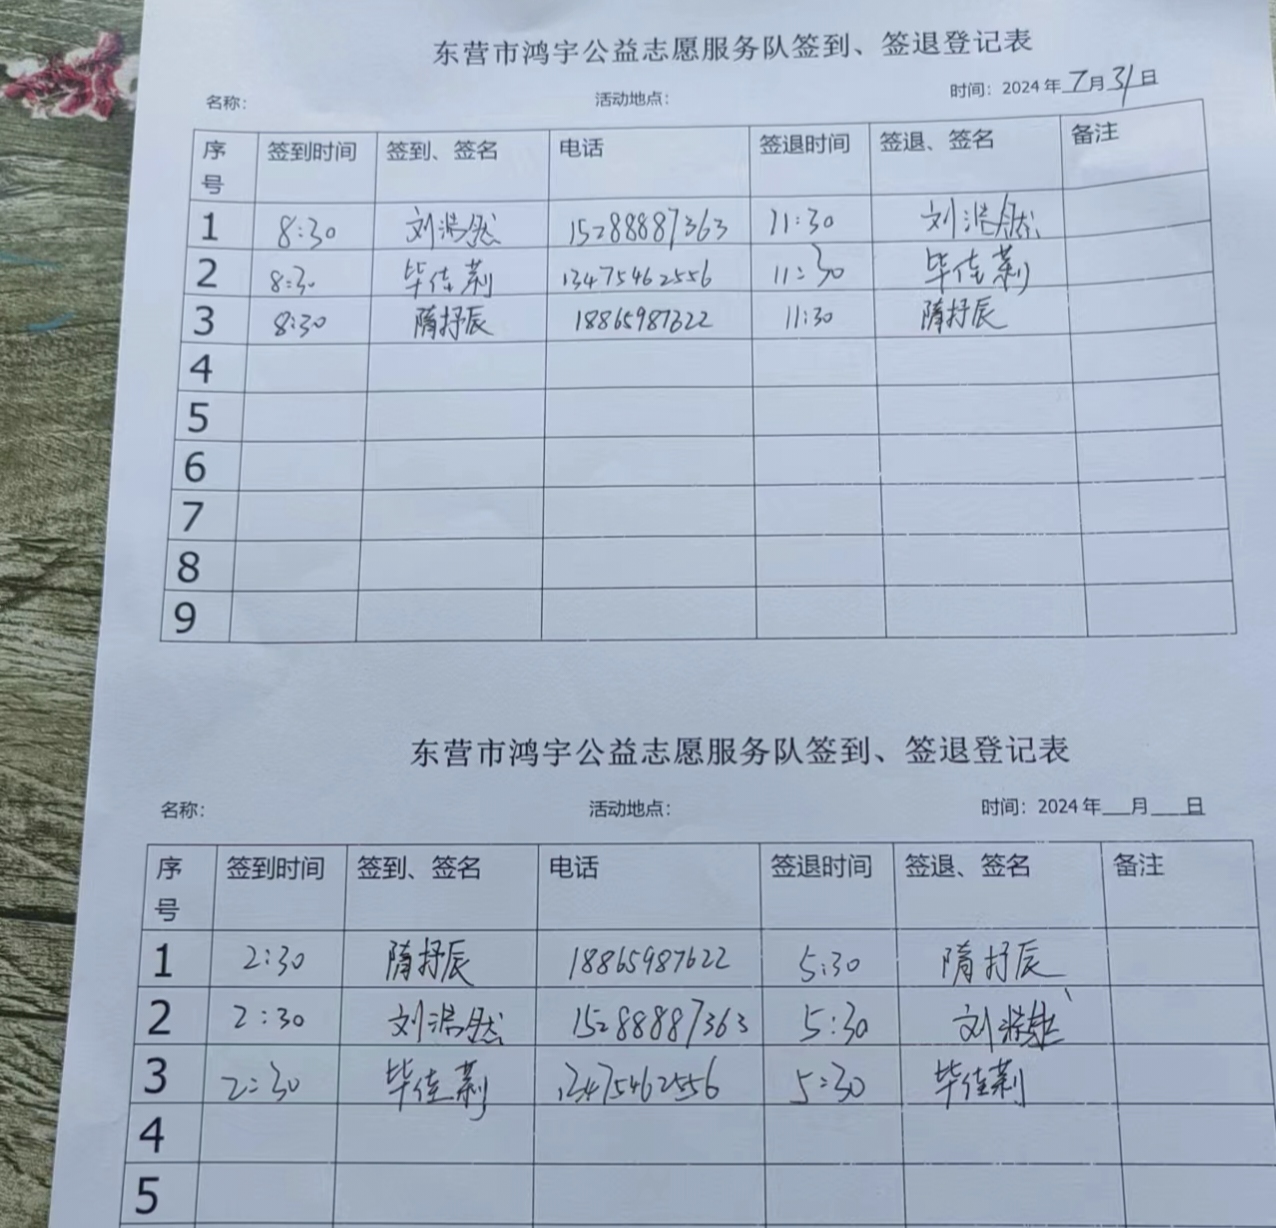 东营市鸿宇公益志愿服务队签到、签退登记表
名称： 活动地点： 时间：2024年7月31日
序号 签到时间 签到、签名 电话 签退时间 签退、签名 备注
1 8:30 刘浩然 15288887363 11:30 刘浩然
2 8:30 毕佳莉 13475462556 11:30 毕佳莉
3 8:30 隋抒辰 18865987622 11:30 隋抒辰
4
5
6
7
8
9
东营市鸿宇公益志愿服务队签到、签退登记表
名称： 活动地点： 时间：2024年__月__日
序号 签到时间 签到、签名 电话 签退时间 签退、签名 备注
1 2:30 隋抒辰 18865987622 5:30 隋抒辰
2 2:30 刘浩然 15288887363 5:30 刘浩然
3 2:30 毕佳莉 13475462556 5:30 毕佳莉
4
5